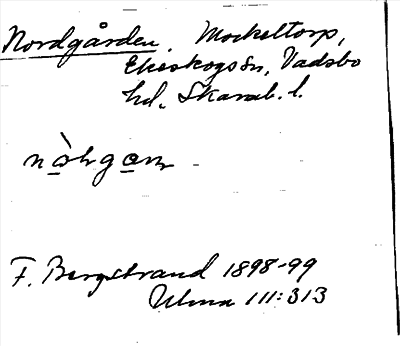 Nordgården. Mockeltorp,
Ekeskogs sn, Vadsbo
hd, Skarab. l.
F. Bergstrand 1898-99
Ulma 111:313